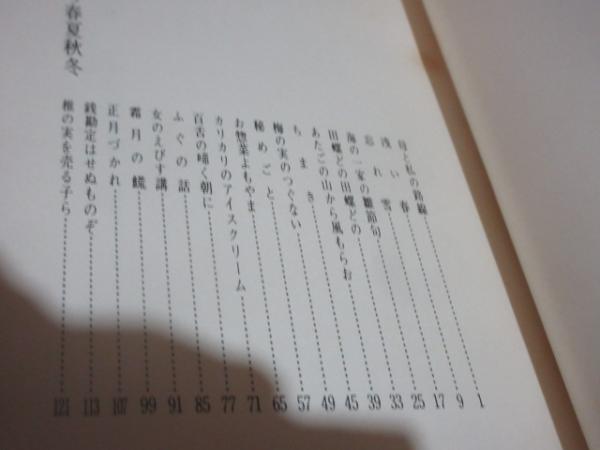 母と私の路線 1
浅い春 9
忘れ雪 17
海の一家の雛節句 25
田螺どの田螺どの 33
あたごの山から風もらお 39
ちまき 45
梅の実のつぐない 49
秘めごと 57
お惣菜よもやま 65
カリカリのアイスクリーム 71
百舌の啼く朝に 77
ふぐの話 85
女のえびす講 91
霜月の 99
正月づかれ 107
銭勘定はせぬものぞ 113
椎の実を売る子ら 121
春夏秋冬